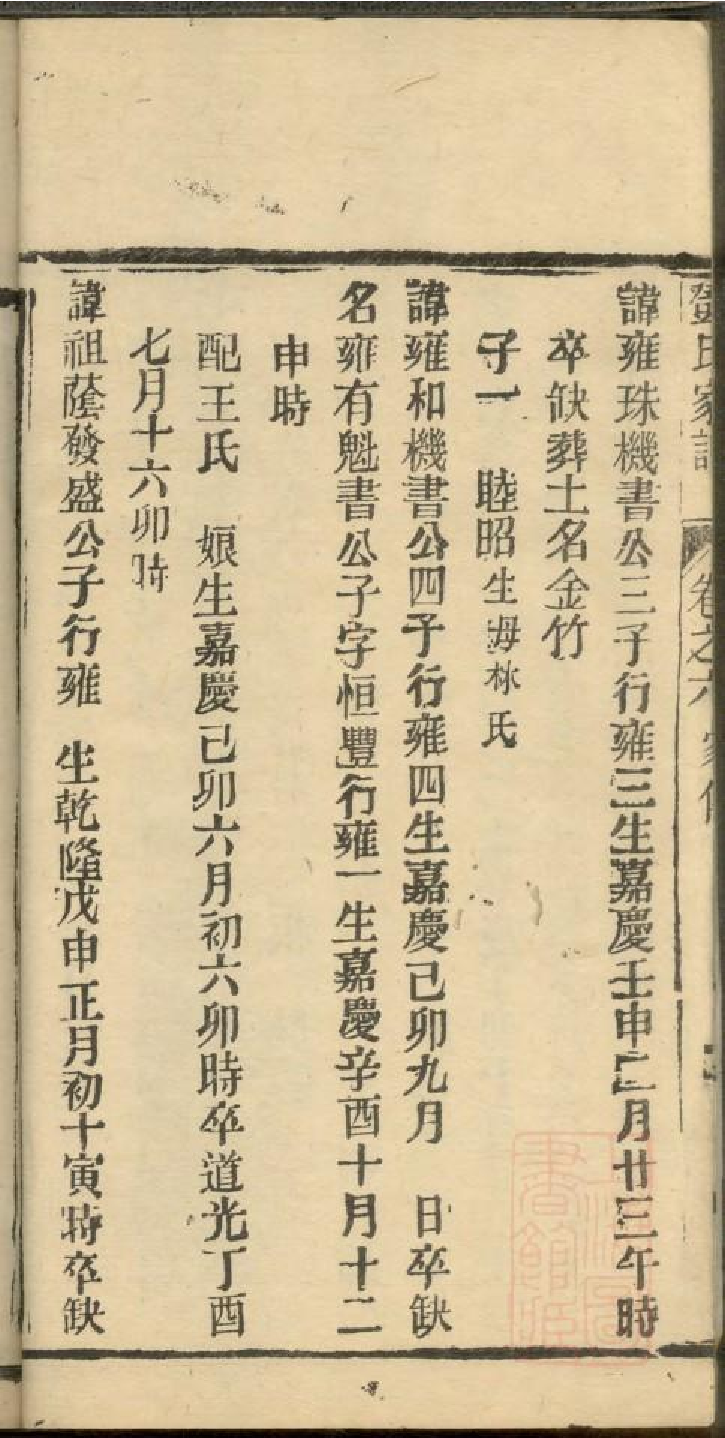 氏家譜 卷之六
諱雍珠機書公三子行雍三生嘉慶壬申二月廿三午時
卒缺葬土名金竹
子一 睦昭生母林氏
諱雍和機書公四子行雍四生嘉慶己卯九月 日卒缺
名雍有魁書公子字恒豐行雍一生嘉慶辛酉十月十二
申時
配王氏 娘生嘉慶己卯六月初六卯時卒道光丁酉
七月十六卯時
諱祖蔭發盛公子行雍 生乾隆戊申正月初十寅時卒缺